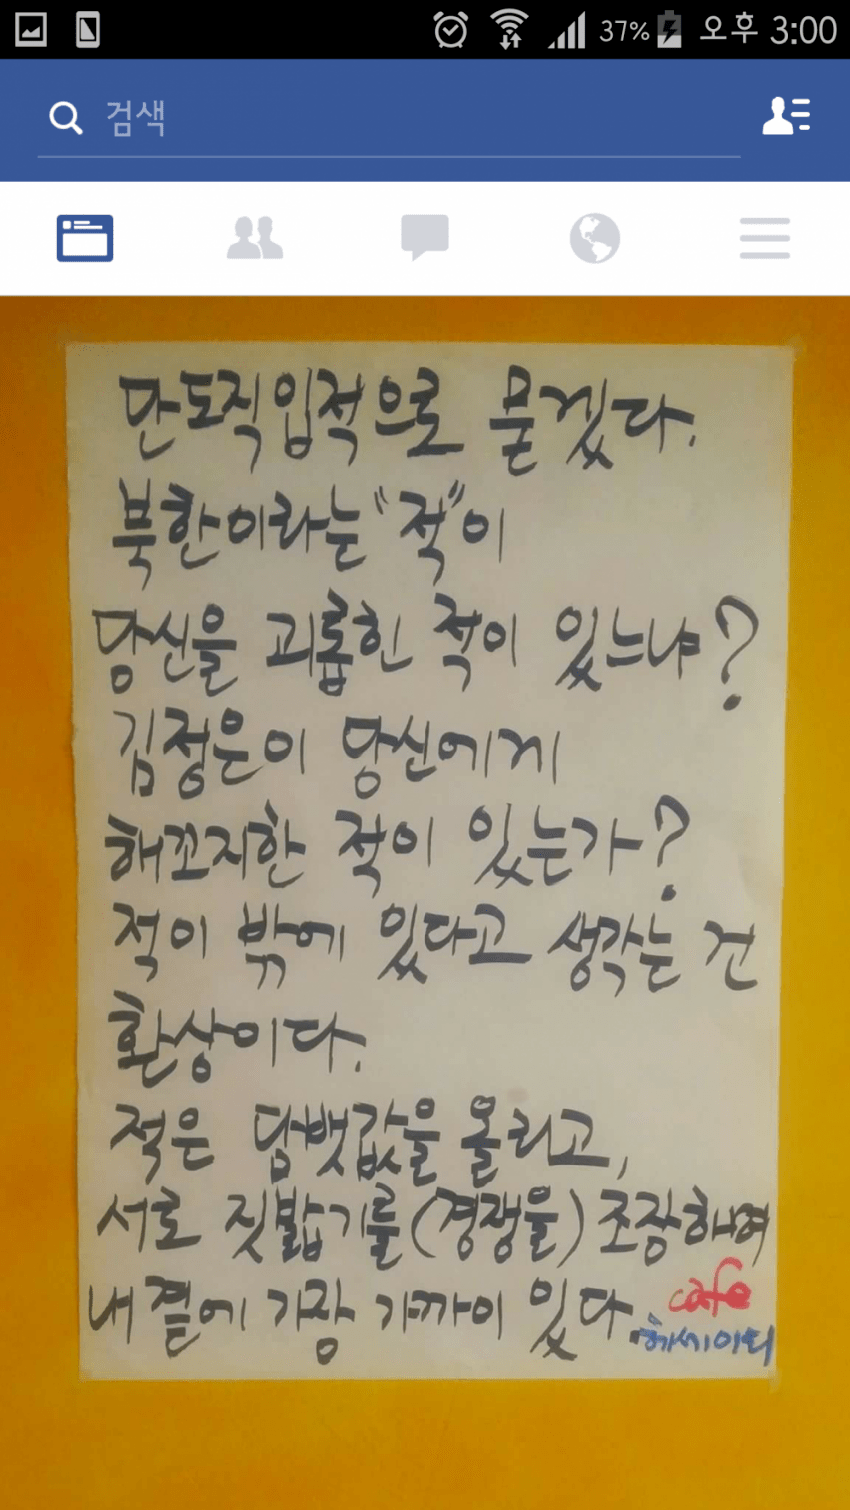 37% 오후 3:00
검색
단도직입적으로 묻겠다.
북한이라는 "적"이
당신을 괴롭힌 적이 있느냐?
김정은이 당신에게
해꼬지한 적이 있는가?
적이 밖에 있다고 생각는 건
환상이다.
적은 담뱃값을 올리고,
서로 짓밟기를(경쟁을) 조장하며
내 곁에 가장 가까이 있다.
cafe